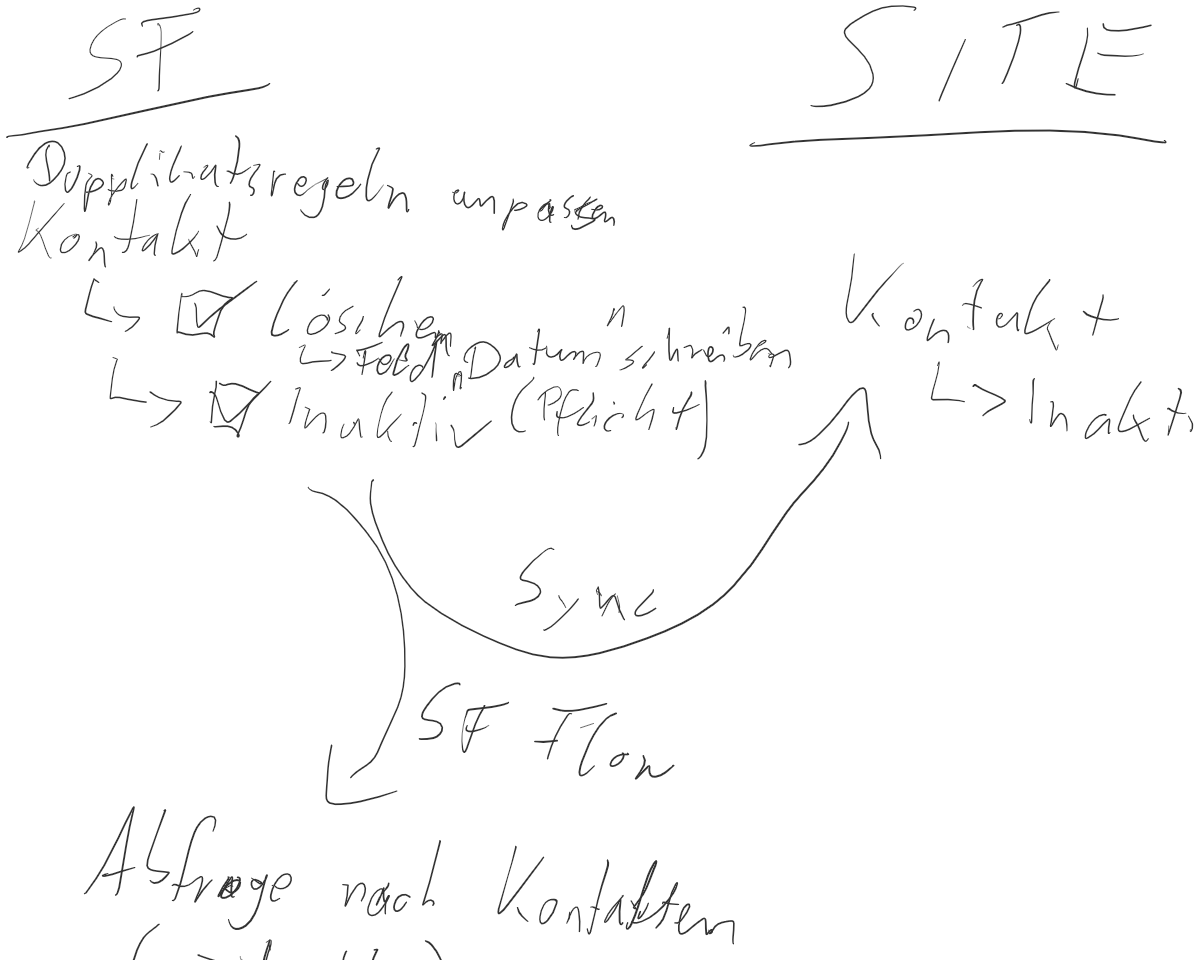 SF
SITE
Dopplikatsregeln anpassen
Kontakt
↳ ☑ Löschen
↳ Feld "Datum" schreiben
↳ ☑ Inaktiv (Pflicht)
Kontakt
↳ Inakti
Sync
SF Flow
Abfrage nach Kontakten